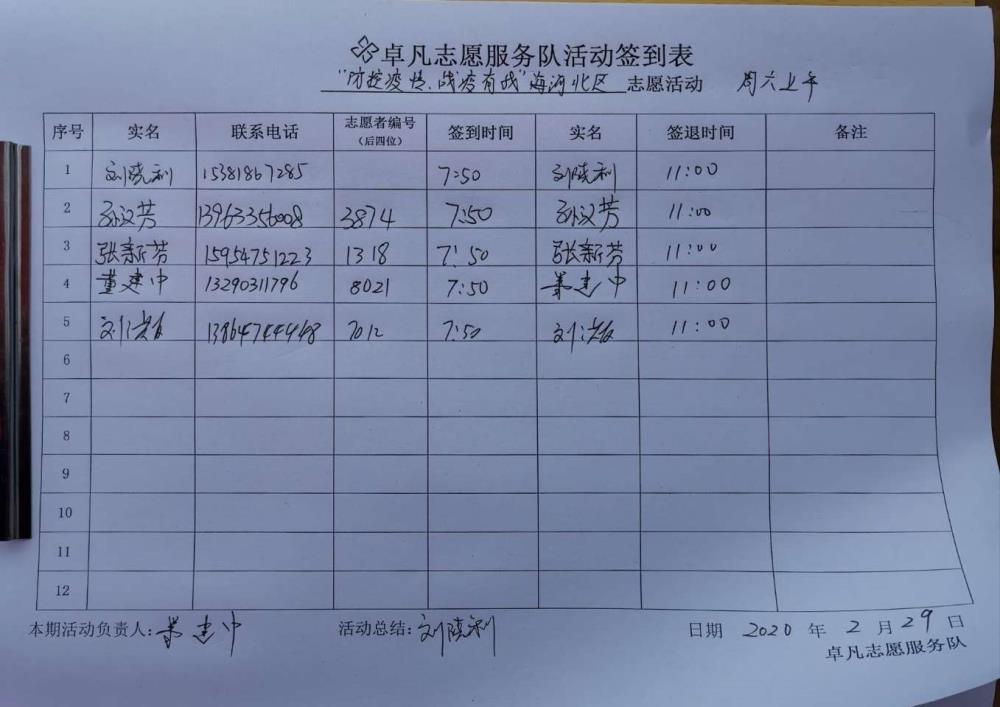 卓凡志愿服务队活动签到表
"防控疫情、战疫有我"海河北区 志愿活动 周六上午
序号 实名 联系电话 志愿者编号(后四位) 签到时间 实名 签退时间 备注
1 刘晓利 15381867285 7:50 刘晓利 11:00
2 孙汉芳 13963356008 3874 7:50 孙汉芳 11:00
3 张新芳 15954751223 1318 7:50 张新芳 11:00
4 董建中 13290311796 8021 7:50 董建中 11:00
5 刘洪 13864744468 7012 7:50 刘洪 11:00
6
7
8
9
10
11
12
本期活动负责人:董建中 活动总结:刘晓利 日期 2020 年 2 月 29 日
卓凡志愿服务队